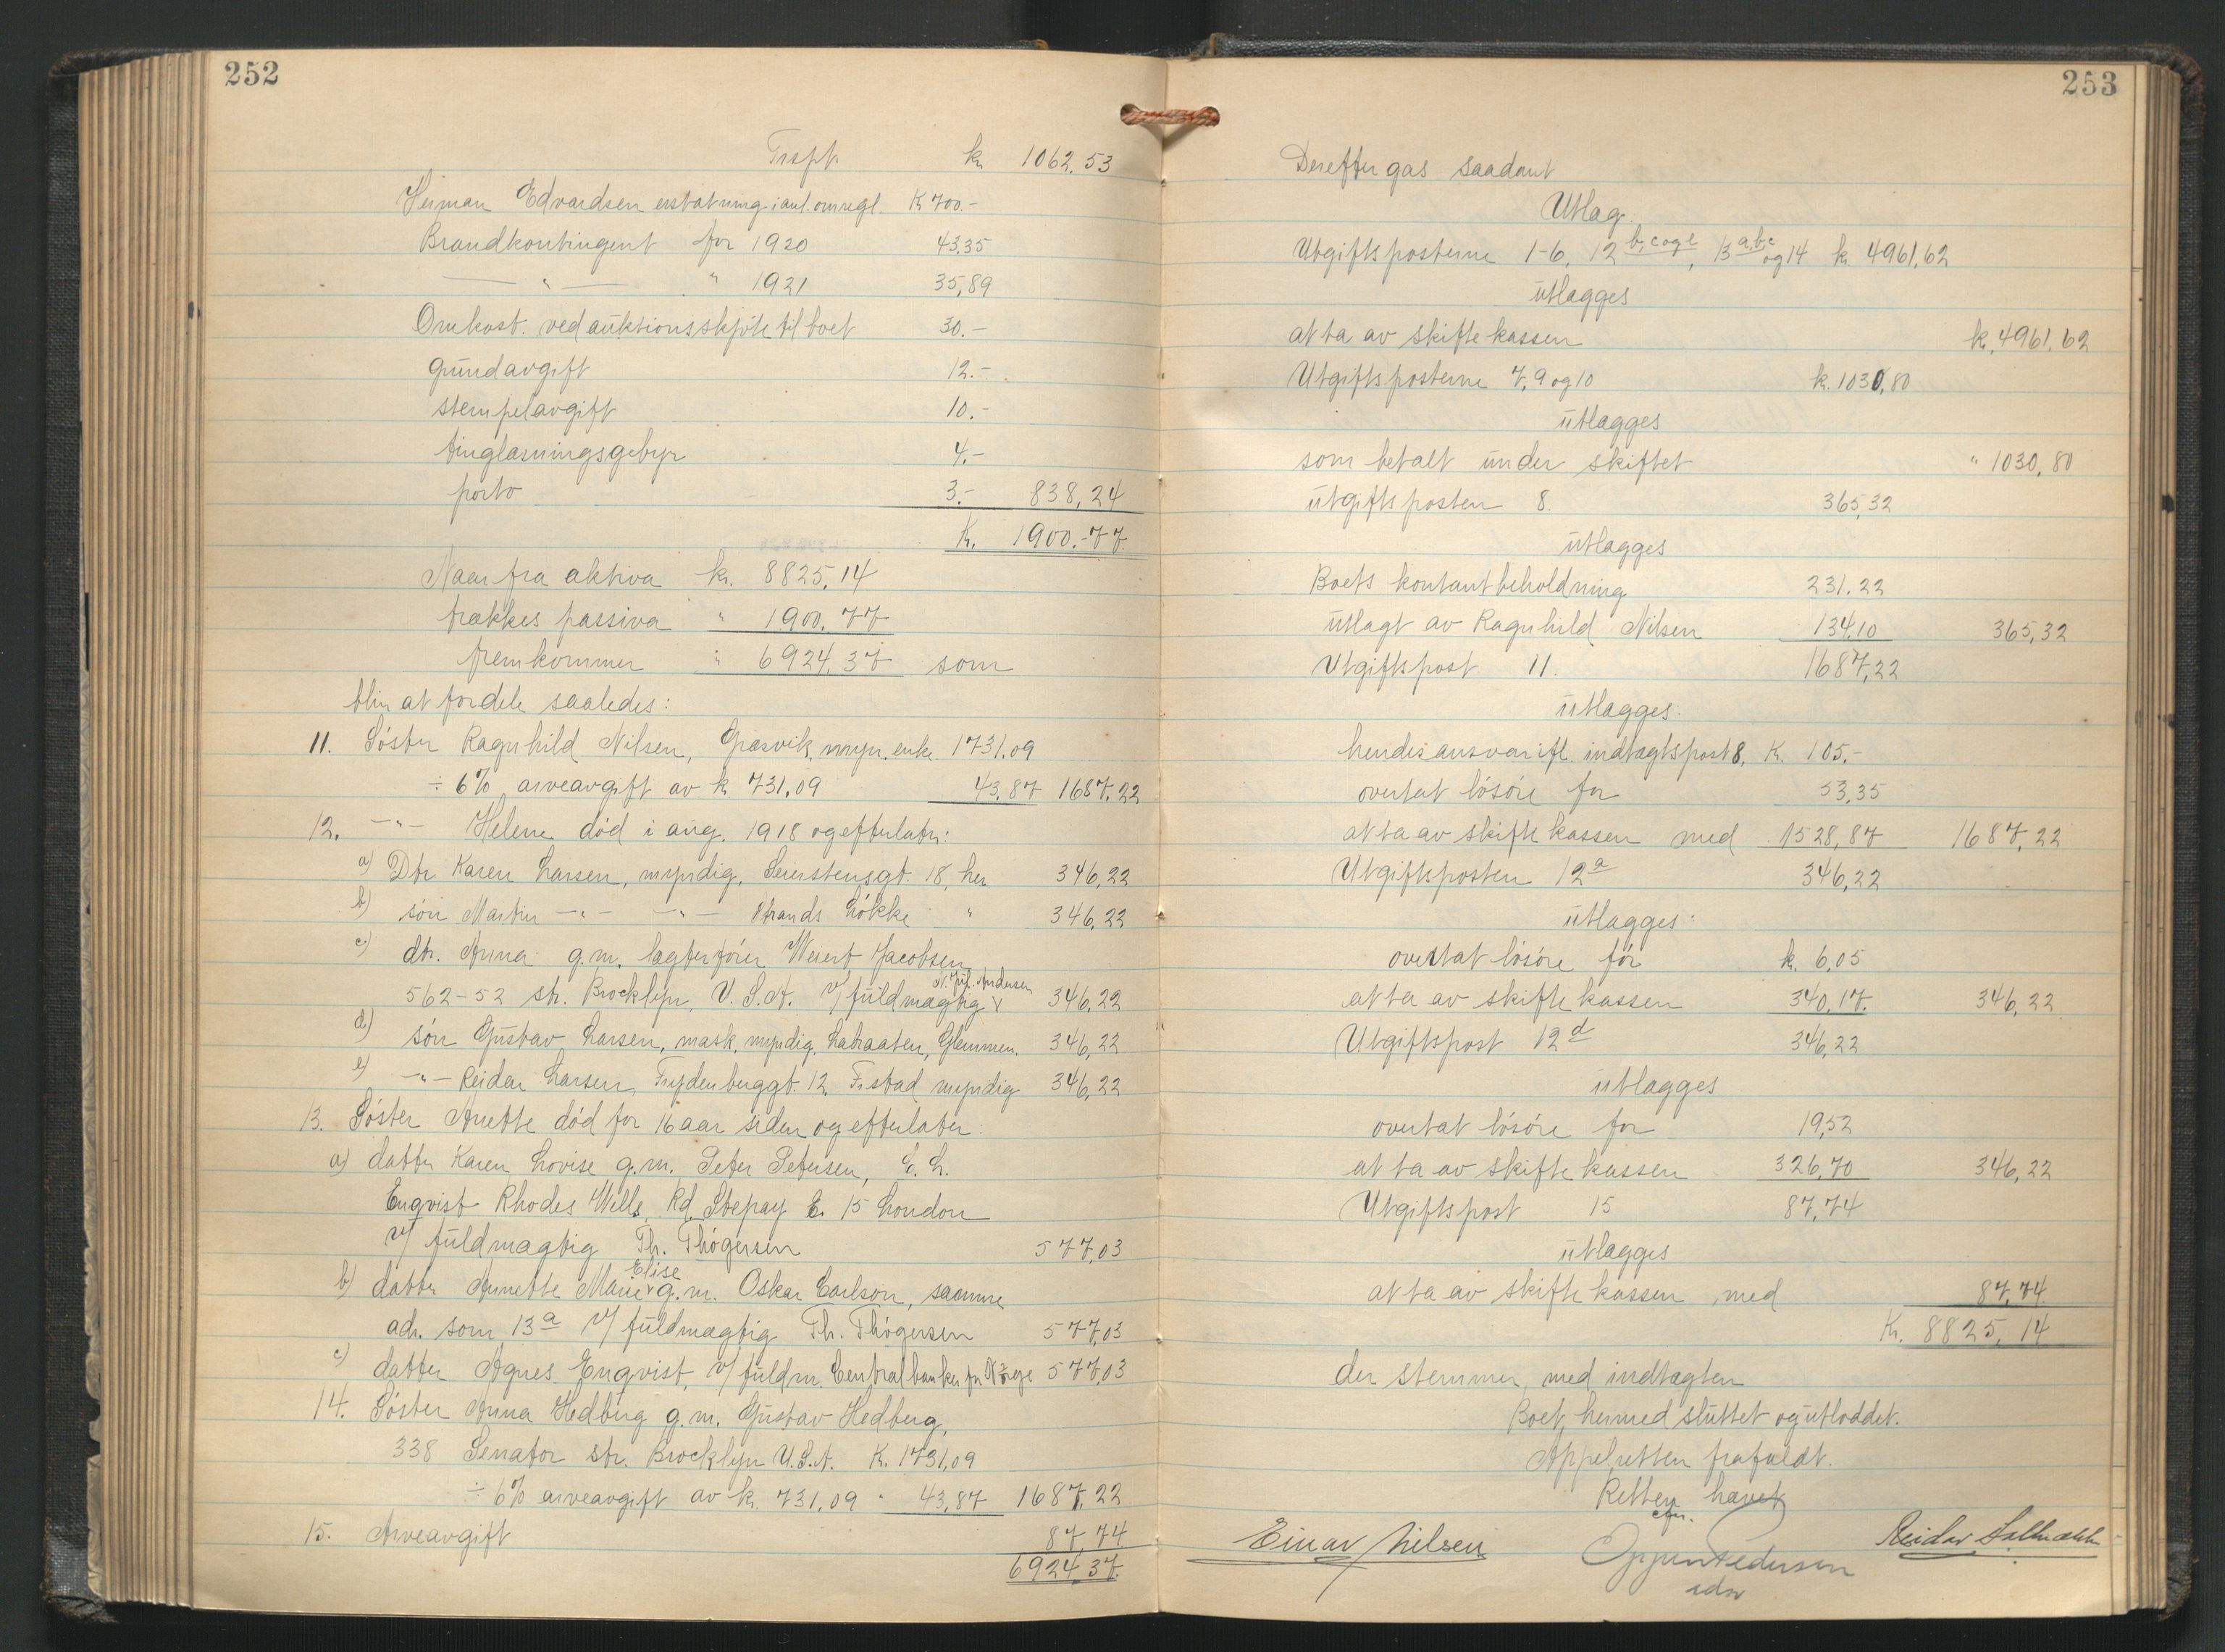 252
Trspt. kr. 1062.53
Herman Edvardsen erstatning i anl. omregl. K 700.-
Brandkontingent for 1920 43.35
— " — " 1921 35,89
Omkost. ved auktionsskjöte til boet 30.-
grundavgift 12.-
stempelavgift 10.-
tinglæsningsgebyr 4.-
porto 3.- 838,24
K. 1900.-77
Naar fra aktiva kr. 8825,14
trækkes passiva " 1900,77
fremkommer " 6924,37 som
blir at fordele saaledes:
11. Söster Ragnhild Nilsen, Græsvik, myn. enke 1731.09
÷ 6% arveavgift av k 731,09 43,87 1687,22
12. —"— Helene död i aug. 1918 og efterlater:
a) Dtr. Karen Larsen, myndig, Seierstensgt. 18, her 346,22
b) sön Martin —"— —"— Strands Lökke " 346,22
c) dtr. Anna g.m. lægterförer Weiert Jacobsen
562-52 str. Brocklyn, U.S.A. v/ fuldmægtig N. Jul. Andersen 346,22
d) sön Gustav Larsen, mask. myndig, Lahaaten, Glemmen. 346,22
e) —"— Reidar Larsen, Frydenberggt. 12, F.stad myndig 346,22
13. Söster Anette död for 16 aar siden og efterlater:
a) datter Karen Lovise g.m. Peter Petersen, C. L.
Enqvist Rhodes Wells, Rd. Stepay E. 15 London
v/ fuldmægtig Th. Thögersen 577,03
b) datter Annette Marie Elise g.m. Oskar Carlson, samme
adr. som 13a v/ fuldmægtig Th. Thögersen 577,03
c) datter Agnes Enqvist, v/ fuldm. Centralbanken for Norge 577,03
14. Söster Anna Hedberg g.m. Gustav Hedberg,
338 Senator str. Brocklyn U.S.A. K. 1731,09
÷ 6% arveavgift av k. 731,09 " 43,87 1687,22
15. Arveavgift 87,74
6924,37.
253
Derefter gas saadant
Utlag.
Utgiftsposterne 1-6, 12 b, c og e, 13 a, b, c og 14 k. 4961,62
utlægges
at ta av skiftekassen k. 4961,62
Utgiftsposterne 7, 9 og 10 k. 1030,80
utlægges
som betalt under skiftet " 1030,80
utgiftsposten 8. 365,32
utlægges
Boets kontantbeholdning 231.22
utlagt av Ragnhild Nilsen 134,10 365,32
Utgiftspost 11. 1687,22
utlægges.
hendes ansvar ifl. indtægtspost 8, K. 105.-
overtat lösöre for 53,35
at ta av skiftekassen med 1528,87 1687,22
Utgiftsposten 12a 346,22
utlægges:
overtat lösöre for k. 6,05
at ta av skiftekassen 340,17. 346,22
Utgiftspost 12d 346,22
utlægges
overtat lösöre for 19,52
at ta av skiftekassen 326,70 346,22
Utgiftspost 15 87,74
utlægges
at ta av skiftekassen med 87,74
Kr. 8825,14
der stemmer med indtægten
Boet hermed sluttet og utloddet.
Appelretten frafaldt.
Retten hævet
Einar Nilsen